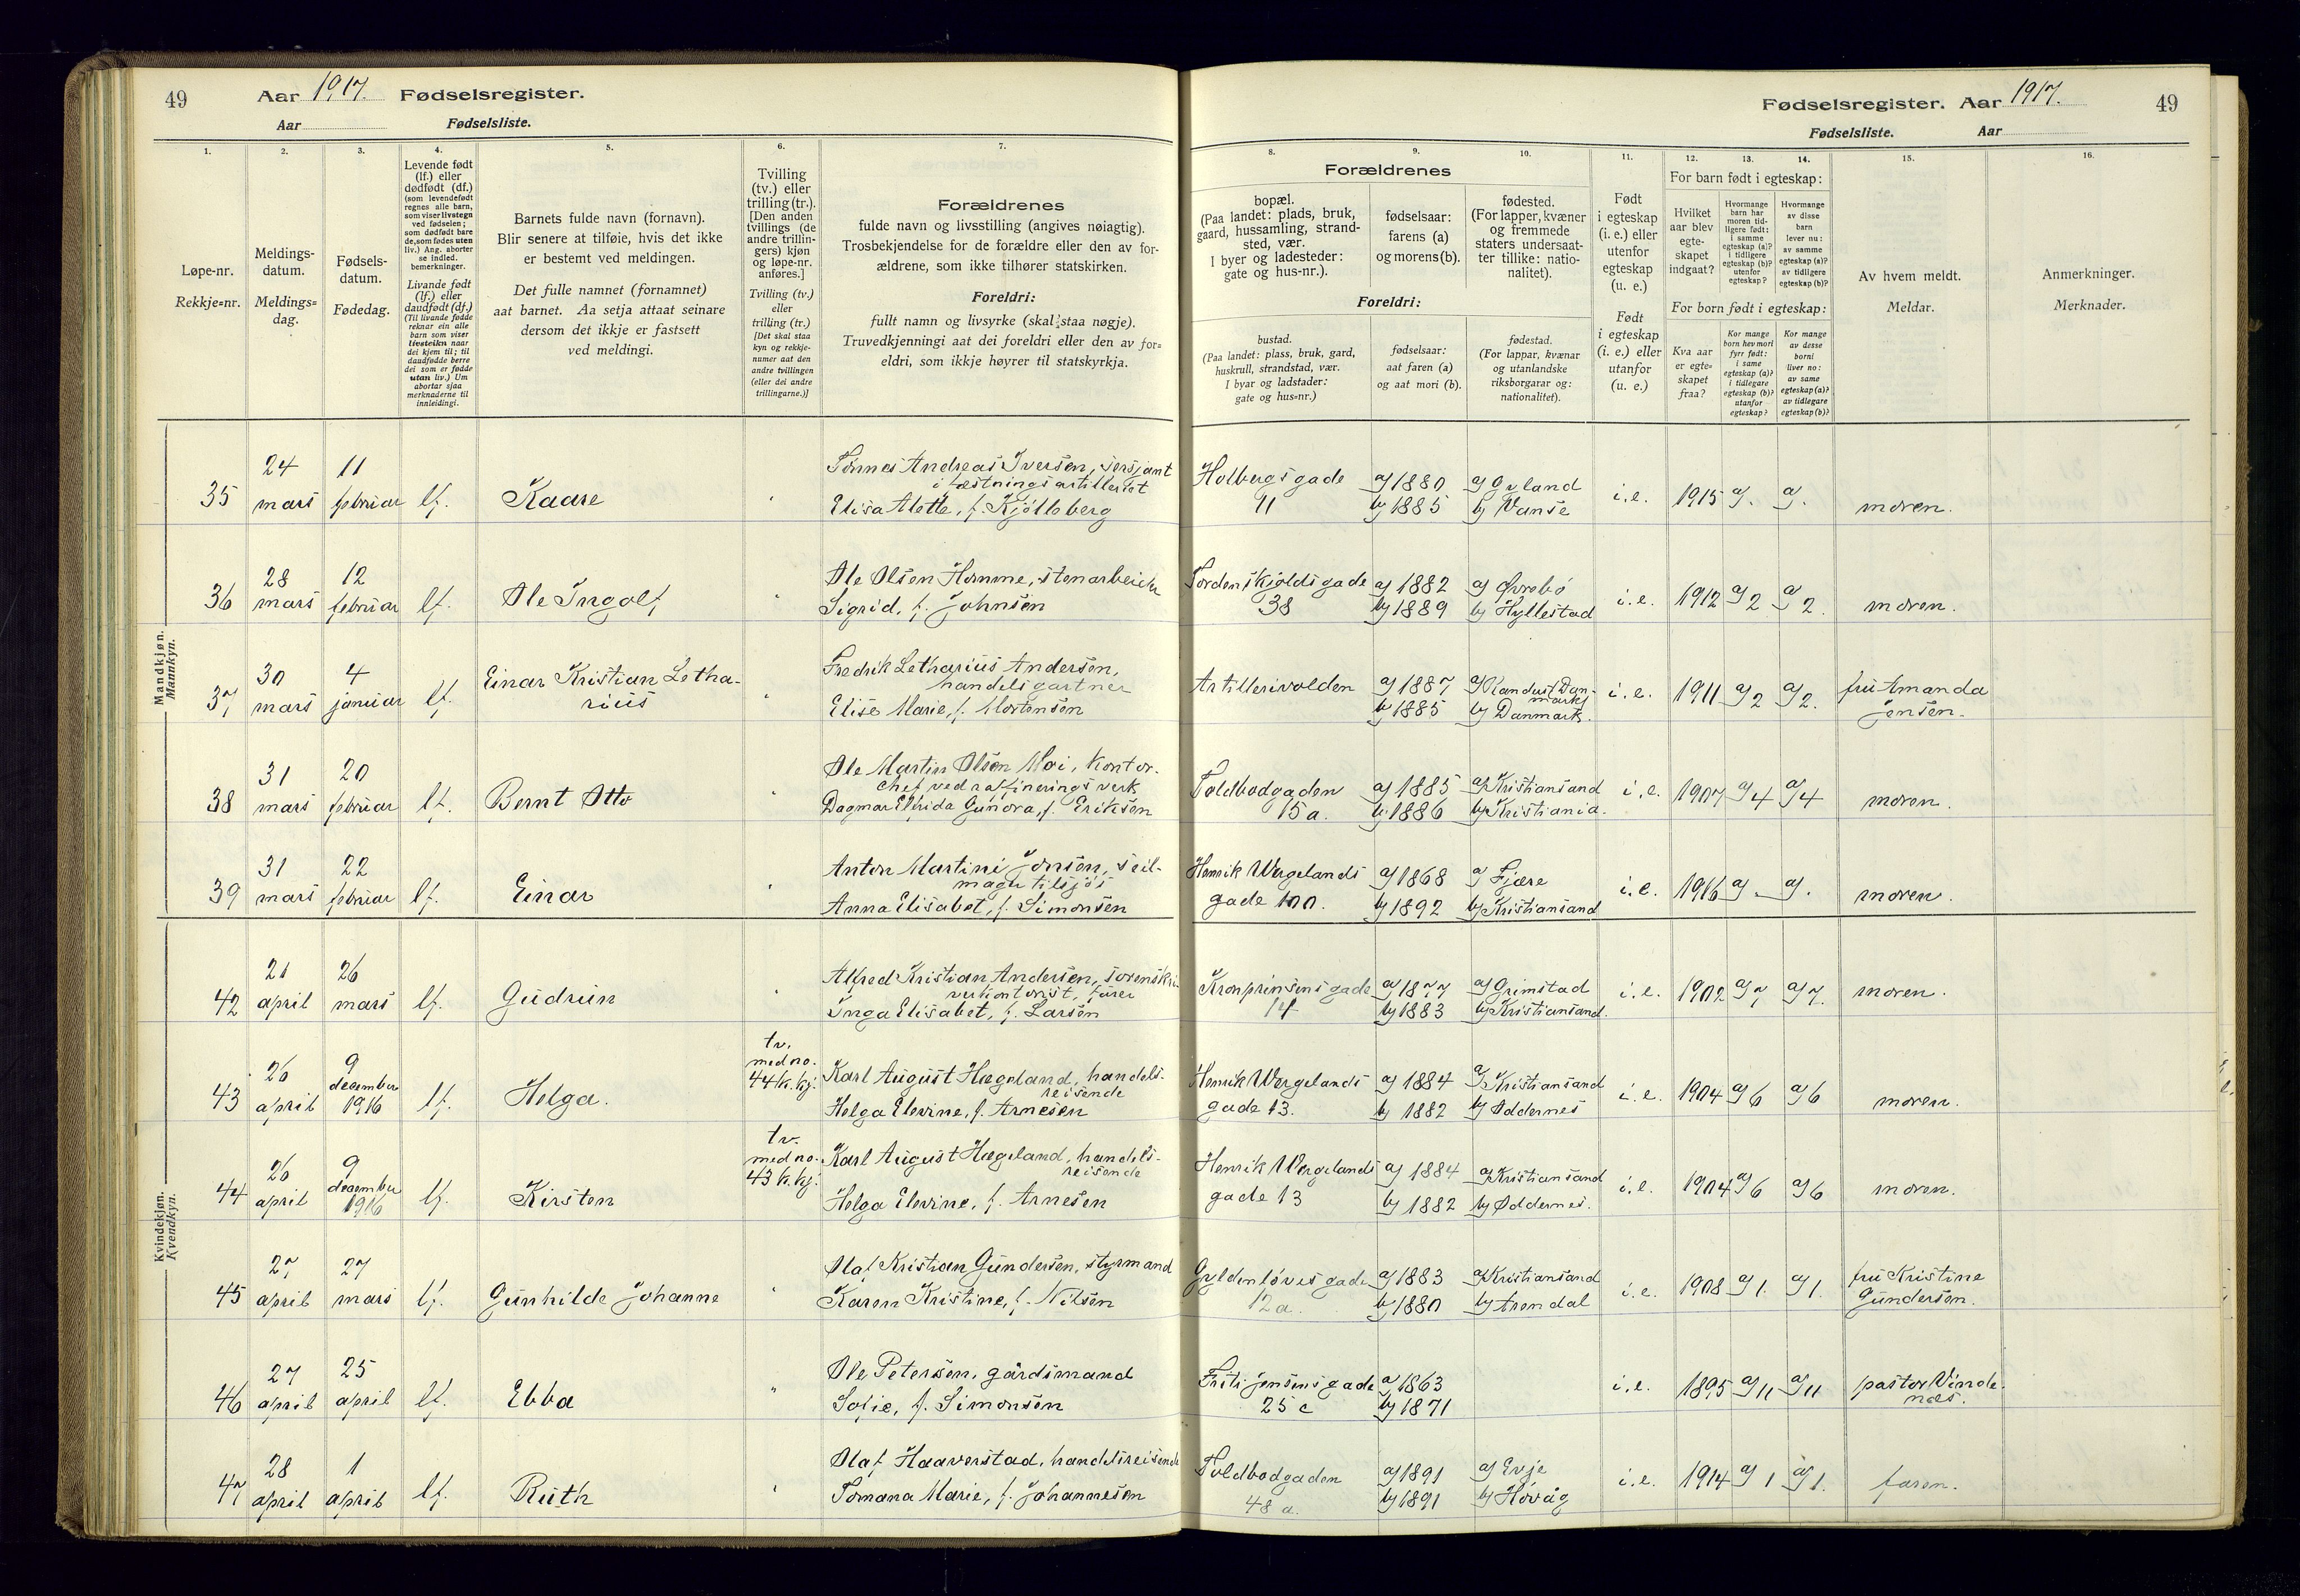 49 Aar 1917. Fødselsregister.
Aar Fødselsliste.
Fødselsregister. Aar 1917. 49
Fødselsliste. Aar
1. 2. 3. 4. 5. 6. 7. 8. 9. 10. 11. 12. 13. 14. 15. 16.
Løpe-nr.
Rekkje=nr.
Meldings-
datum.
Meldings=
dag.
Fødsels-
datum.
Fødedag.
Levende født
(lf.) eller
dødfødt (df.)
(som levendefødt
regnes alle barn,
som viser livstegn
ved fødselen;
som dødfødt bare
de, som fødes uten
liv.) Ang. aborter
se indled.
bemerkninger.
Livande født
(lf.) eller
daudfødt (df.)
(Til livande fødde
reknar ein alle
barn som viser
livsteikn naar
dei kjem til; til
daudfødde berre
dei som er fødde
utan liv.) Um
abortar sjaa
merknaderne til
innleidingi.
Barnets fulde navn (fornavn).
Blir senere at tilføie, hvis det ikke
er bestemt ved meldingen.
Det fulle namnet (fornamnet)
aat barnet. Aa setja attaat seinare
dersom det ikkje er fastsett
ved meldingi.
Tvilling
(tv.) eller
trilling (tr.).
[Den anden
tvillings (de
andre trillin-
gers) kjøn
og løpe-nr.
anføres.]
Tvilling (tv.)
eller
trilling (tr.)
[Det skal staa
kyn og rekkje-
numer aat den
andre tvillingen
(eller dei andre
trillingarne.)]
Forældrenes
fulde navn og livsstilling (angives nøiagtig).
Trosbekjendelse for de forældre eller den av for-
ældrene, som ikke tilhører statskirken.
Foreldri:
fullt namn og livsyrke (skal staa nøgje).
Truvedkjenningi aat dei foreldri eller den av for=
eldri, som ikkje høyrer til statskyrkja.
Forældrenes
bopæl.
(Paa landet: plads, bruk,
gaard, hussamling, strand-
sted, vær.
I byer og ladesteder:
gate og hus-nr.).
fødselsaar:
farens (a)
og morens (b).
fødested.
(For lapper, kvæner
og fremmede
staters undersaat-
ter tillike: natio-
nalitet).
Foreldri:
bustad.
(Paa landet: plass, bruk, gard,
huskrull, strandstad, vær.
I byar og ladstader:
gate og hus=nr.)
fødselsaar:
aat faren (a)
og aat mori (b).
fødestad.
(For lappar, kvænar
og utanlandske
riksborgarar og:
nationalitet).
Født
i egteskap
(i. e.) eller
utenfor
egteskap
(u. e.)
Født
i egteskap
(i. e.) eller
utanfor
(u. e.)
For barn født i egteskap:
Hvilket
aar blev
egte-
skapet
indgaat?
Hvormange
barn har
moren tid-
ligere født:
i samme
egteskap (a)?
i tidligere
egteskap (b)?
utenfor
egteskap?
Hvormange
av disse
barn
lever nu:
av samme
egteskap (a)?
av tidligere
egteskap (b)?
For born født i egteskap:
Kva aar
er egte=
skapet
fraa?
Kor mange
born hev mori
fyrr født:
i same
egteskap (a)?
i tidlegare
egteskap (b)?
utanfor
egteskap?
Kor mange
av desse
borni
liver no:
av same
egteskap (a)?
av tidlegare
egteskap (b)?
Av hvem meldt.
Meldar.
Anmerkninger.
Merknader.
Mandkjøn.
Mannkyn.
35 24 mars 11 februar lf. Kaare
Tønnes Andreas Iversen, sersjant
i fæstningsartilleriet
Elisa Alette, f. Kjølleberg
Holbergsgade
11
a) 1880
b) 1885
a) Gyland
b) Vanse
i.e. 1915 a) - a) - moren.
36 28 mars 12 februar lf. Ole Ingolf
Ole Olsen Homme, stenarbeider
Sigrid, f. Johnsen
Tordenskjoldsgade
38
a) 1882
b) 1889
a) Øvrebø
b) Hyllestad
i.e. 1912 a) 2 a) 2. moren.
37 30 mars 4 januar lf. Einar Kristian Letha-
rius
Fredrik Letharius Andersen,
handelsgartner
Elise Marie, f. Mortensen
Artillerivolden
a) 1887
b) 1885
b) Danmark.
i.e. 1911 a) 2 a) 2. fru Amanda
Jensen.
38 31 mars 20 februar lf. Bernt Otto
Ole Martin Olsen Moi, kontor-
chef ved rafineringsverk
Dagmar Elfrida Gunora, f. Eriksen
Toldbodgaden
15 a.
a) 1885
b) 1886
a) Kristiansand
b) Kristiania.
i.e. 1907 a) 4 a) 4 moren.
39 31 mars 22 februar lf. Einar
Anton Martini Jonsen, seil-
mager tilsjøs
Anna Elisabet, f. Simonsen
Henrik Wergelands
gade 100.
a) 1868
b) 1892
a) Fjære
b) Kristiansand
i.e. 1916 a) - a) - moren.
Kvindekjøn.
Kvendkyn.
42 21 april 26 mars lf. Gudrun
Alfred Kristian Andersen, sorenskri-
verkontorist, fører
Inga Elisabet, f. Larsen
Kronprinsensgade
14
a) 1877
b) 1883
a) Grimstad
b) Kristiansand.
i.e. 1902 a) 7 a) 7. moren.
43 26 april 9 december 1916 lf. Helga.
tv.
med no.
44 k.kj.
Karl August Hægeland, handels-
reisende
Helga Elevine, f. Arnesen
Henrik Wergelands
gade 13.
a) 1884
b) 1882
a) Kristiansand
b) Oddernes
i.e. 1904 a) 6 a) 6 moren.
44 26 april 9 december 1916 lf. Kirsten
tv.
med no.
43 k.kj.
Karl August Hægeland, handels-
reisende
Helga Elevine, f. Arnesen
Henrik Wergelands
gade 13
a) 1884
b) 1882
a) Kristiansand
b) Oddernes.
i.e. 1904 a) 6 a) 6 moren.
45 27 april 27 mars lf. Gunhilde Johanne
Olaf Kristian Gundersen, styrmand
Karen Kristine, f. Nilsen
Gyldenløvesgade
12 a.
a) 1883
b) 1880
a) Kristiansand
b) Arendal
i.e. 1908 a) 1. a) 1. fru Kristine
Gundersen.
46 27 april 25 april lf. Ebba
Ole Petersen, gårdsmand
Sofie, f. Simonsen
Fritz Jensensgade
25 c
a) 1863
b) 1871
i.e. 1895 a) 11 a) 11 pastor Vinde-
næs.
47 28 april 1 april lf. Ruth
Olaf Haaverstad, handelsreisende
Tomana Marie, f. Johannesen
Toldbodgaden
48 a.
a) 1891
b) 1891
a) Evje
b) Høvåg
i.e. 1914 a) 1 a) 1. faren.